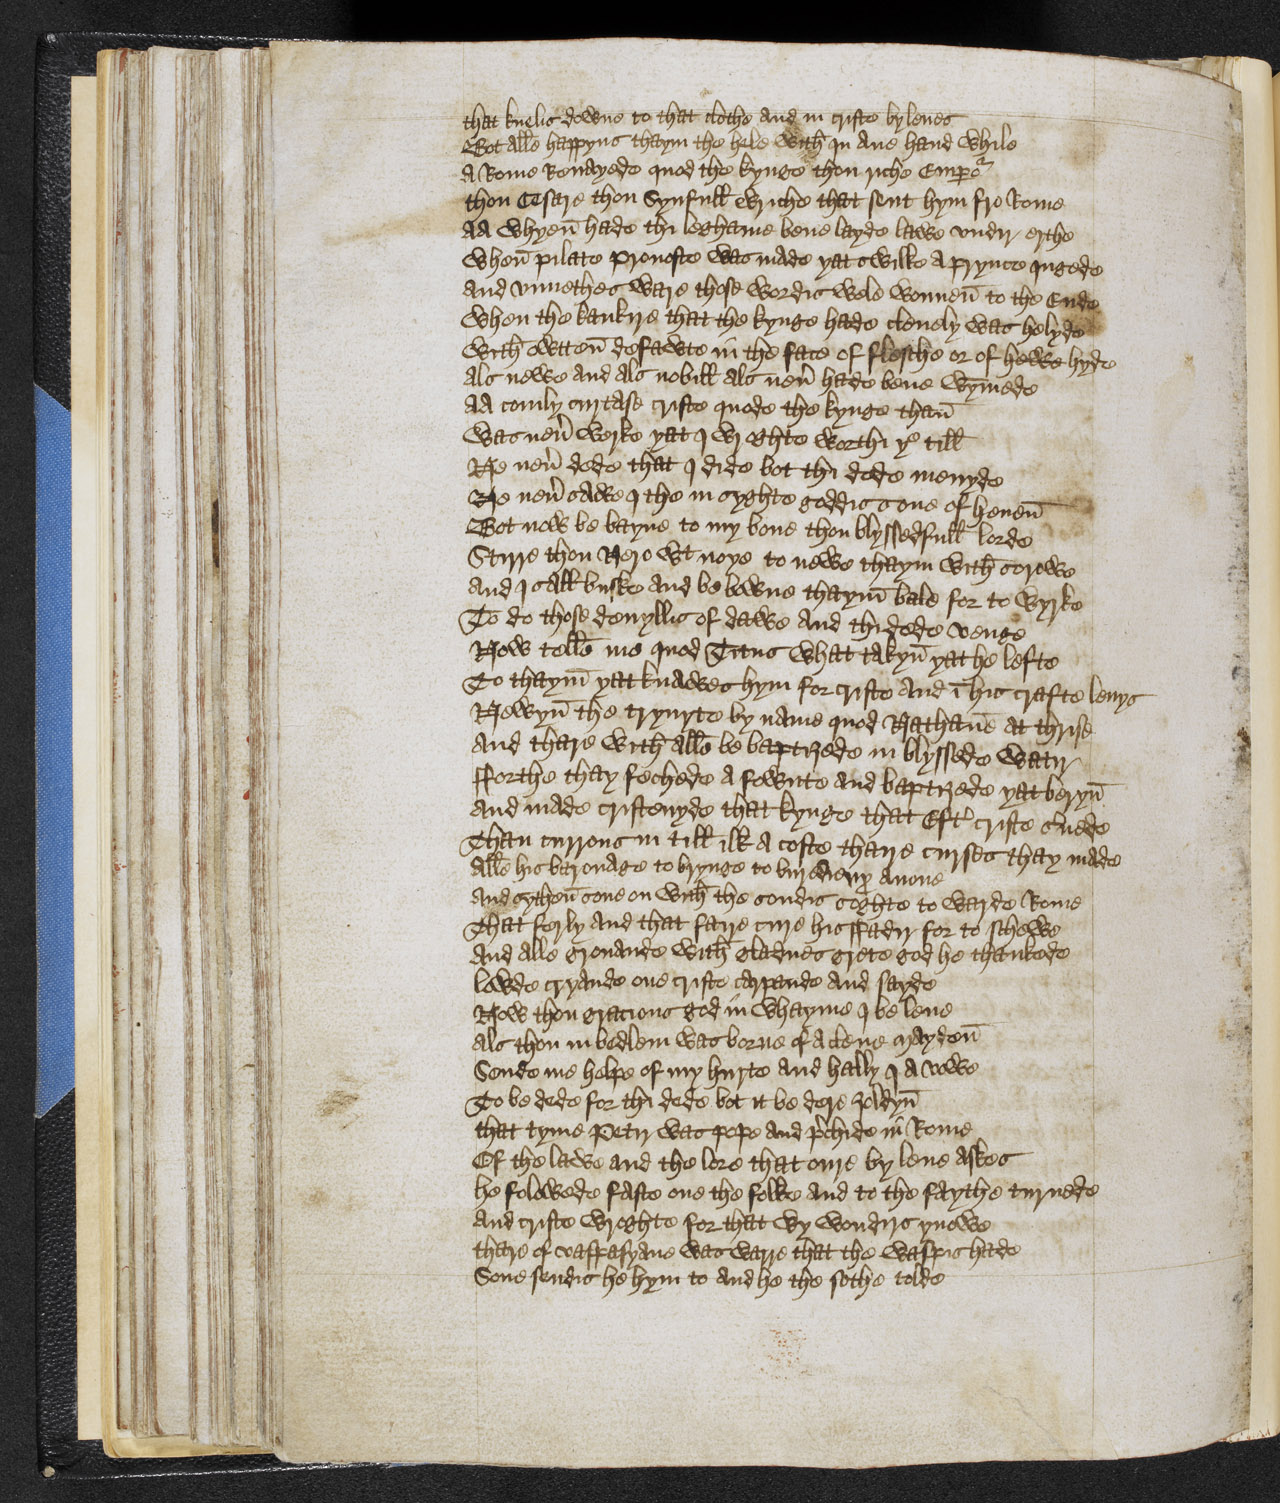 that knelis downe to that clothe and in criste by leues
Bot alle happyns thaym the hele with In ane hand while
A Rome Renayede quod the kynge thou riche Empor
thou Cesare thou Synfull wriche that sent hym fro Rome
AA whyen̄ hade thi leghame bene layde lawe vndir erthe
when̄ pilate prouoste was made yat swilke a prynce Jugede
and vnnethes ware those wordis wele wonnen̄ to the Ende
when the kankire that the kynge hade clenely was helyde
with owtten̄ defawte in the face of flesche or of hewe hyde
als newe and als nobill als neū hade bene wymede
AA comly curtase criste quode the kynge than̄
was neū werke yat I wroghte worthi ye till
Ne neū dede that I dide bot thi dede menyde
Ne neū sawe I the in syghte goddis sone of heuen̄
Bot now be bayne to my bone thou blyssedfull lorde
Stirre thou Nero wt noye to newe thaym with sorowe
and I sall buske and be bowne thaym̄ bale for to wyrke
To do those deuyllis of dawe and thi dede venge
Now telle me quod Titus what takyn̄ yat he lefte
To thaym̄ yat knawes hym for criste and ī his crafte leuys
Newyn̄ the trynyte by name quod Nathane at thrise
and thare with alle be baptizede in blyssede watir
fforthe thay fechede a fownte and baptizede yat beryn̄
and made cristenyde that kynge that Eft criste suede
Than currours in till ilk a coste thaire curses thay made
alle his baronage to brynge to burdewx anone
and sythen̄ sone on with the sondis soghte to warde Rome
That ferly and that faire cure his ffadir for to schewe
And alle gronande with gladnes grete god he thankede
lowde cryande one criste carpande and sayde
Now thou gracious god in whayme I be leue
als thou in bedlem was borne of a clene mayden̄
Sende me helpe of my hurte and hally I a vowe
To be dede for thi dede bot it be dere ȝoldyn̄
that tyme Petir was pope and p̄chide in Rome
Of the lawe and the lore that oure by leue askes
he folowede faste one the folke and to the faythe turnede
and criste wroghte for that wy wondirs ynowe
thare of vaspasyane was warre that the waspis hade
Sone sendis he hym to and he the sothe tolde